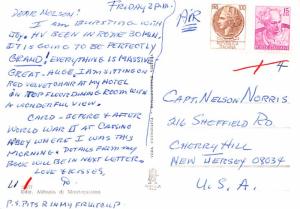 FRIDAY 2 P.M.
DEAR NELSON!
I AM BURSTING WITH
JOY. HV BEEN IN ROME 30 MIN.
IT IS GOING TO BE PERFECTLY
GRAND! EVERYTHING IS MASSIVE
GREAT-HUGE. I AM SITTING ON
RED VELVET CHAIR AT MY HOTEL
ON TOP FLOOR DINING ROOM WITH
A WONDERFUL VIEW.
CARD - BEFORE + AFTER
WORLD WAR II AT CASINO
ABBEY WHERE I WAS THIS
MORNING. DETAILS FROM MY
BOOK WILL BE IN NEXT LETTER.
LOVE & KISSES,
P.S. PITS IN MY FRUIT CUP
AIR
CAPT. NELSON NORRIS
216 SHEFFIELD RD
CHERRY HILL
NEW JERSEY 08034
U.S.A.